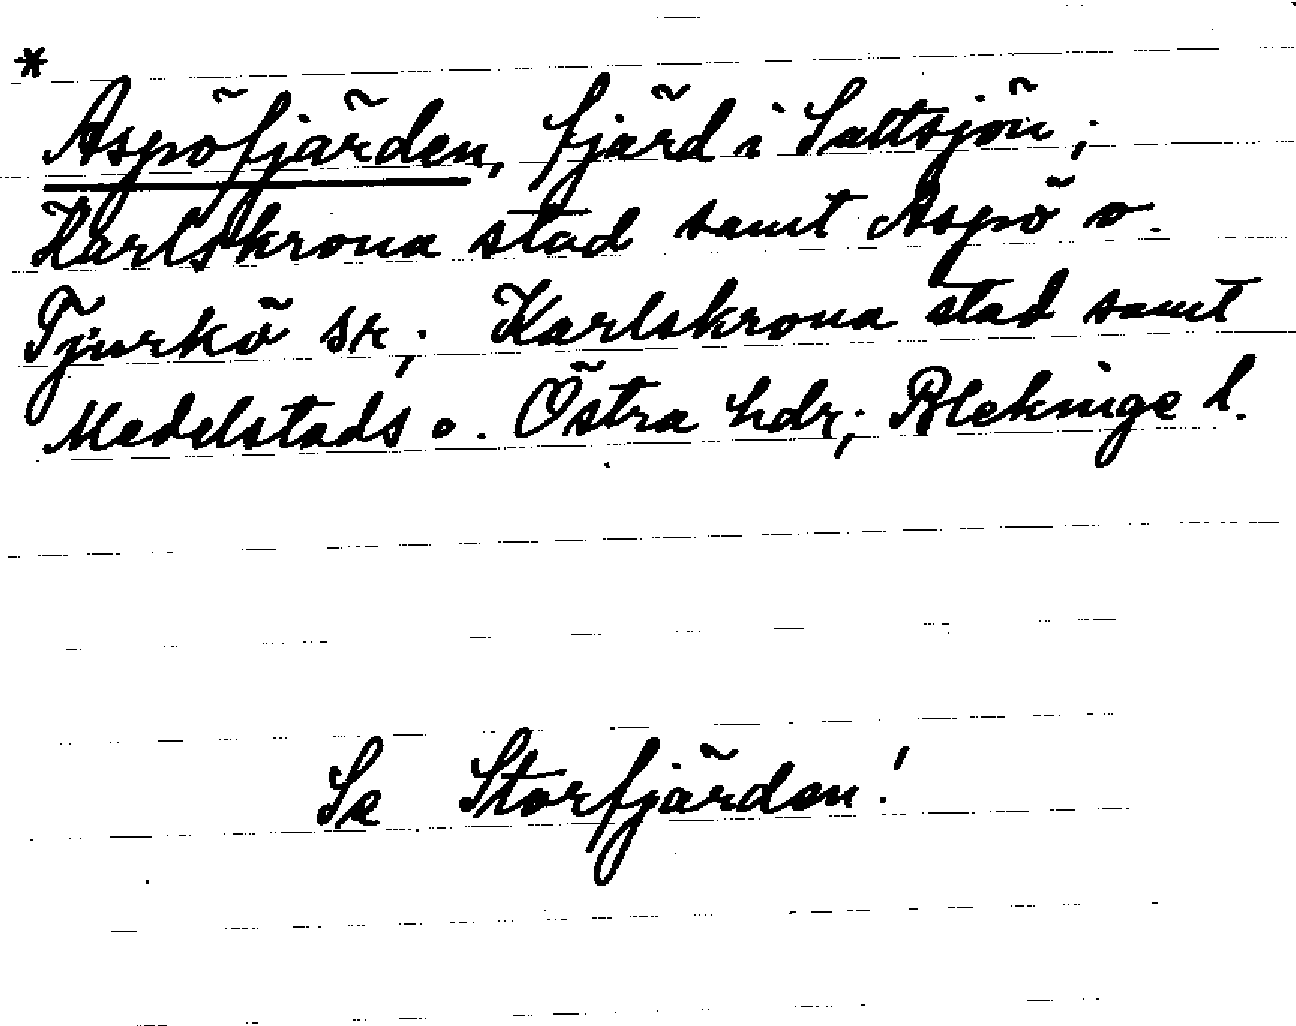 *
Aspöfjärden, fjärd i Saltsjön;
Karlskrona stad samt Aspö o.
Tjurkö sk; Karlskrona stad samt
Medelstads o. Östra hdr; Blekinge l.
Se Storfjärden!